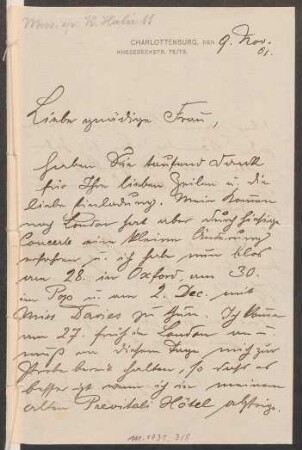 CHARLOTTENBURG, DEN 9. Nov.
KNESEBECKSTR. 72/73. 01.
Liebe gnädige Frau,
haben Sie tausend Dank
für Ihre lieben Zeilen u. die
liebe Einladung. Mein Kommen
nach London hat aber durch hiesige
Concerte eine kleine Änderung
erfahren u. ich habe nun blos
am 28. in Oxford, am 30.
im Pop u. am 2. Dec. mit
Miss Davies zu thun. Ich komme
am 27. früh in London an u.
muß an diesem Tage mich zur
Probe bereit halten, so daß es
besser ist wenn ich in meinem
alten Previtali Hôtel absteige.